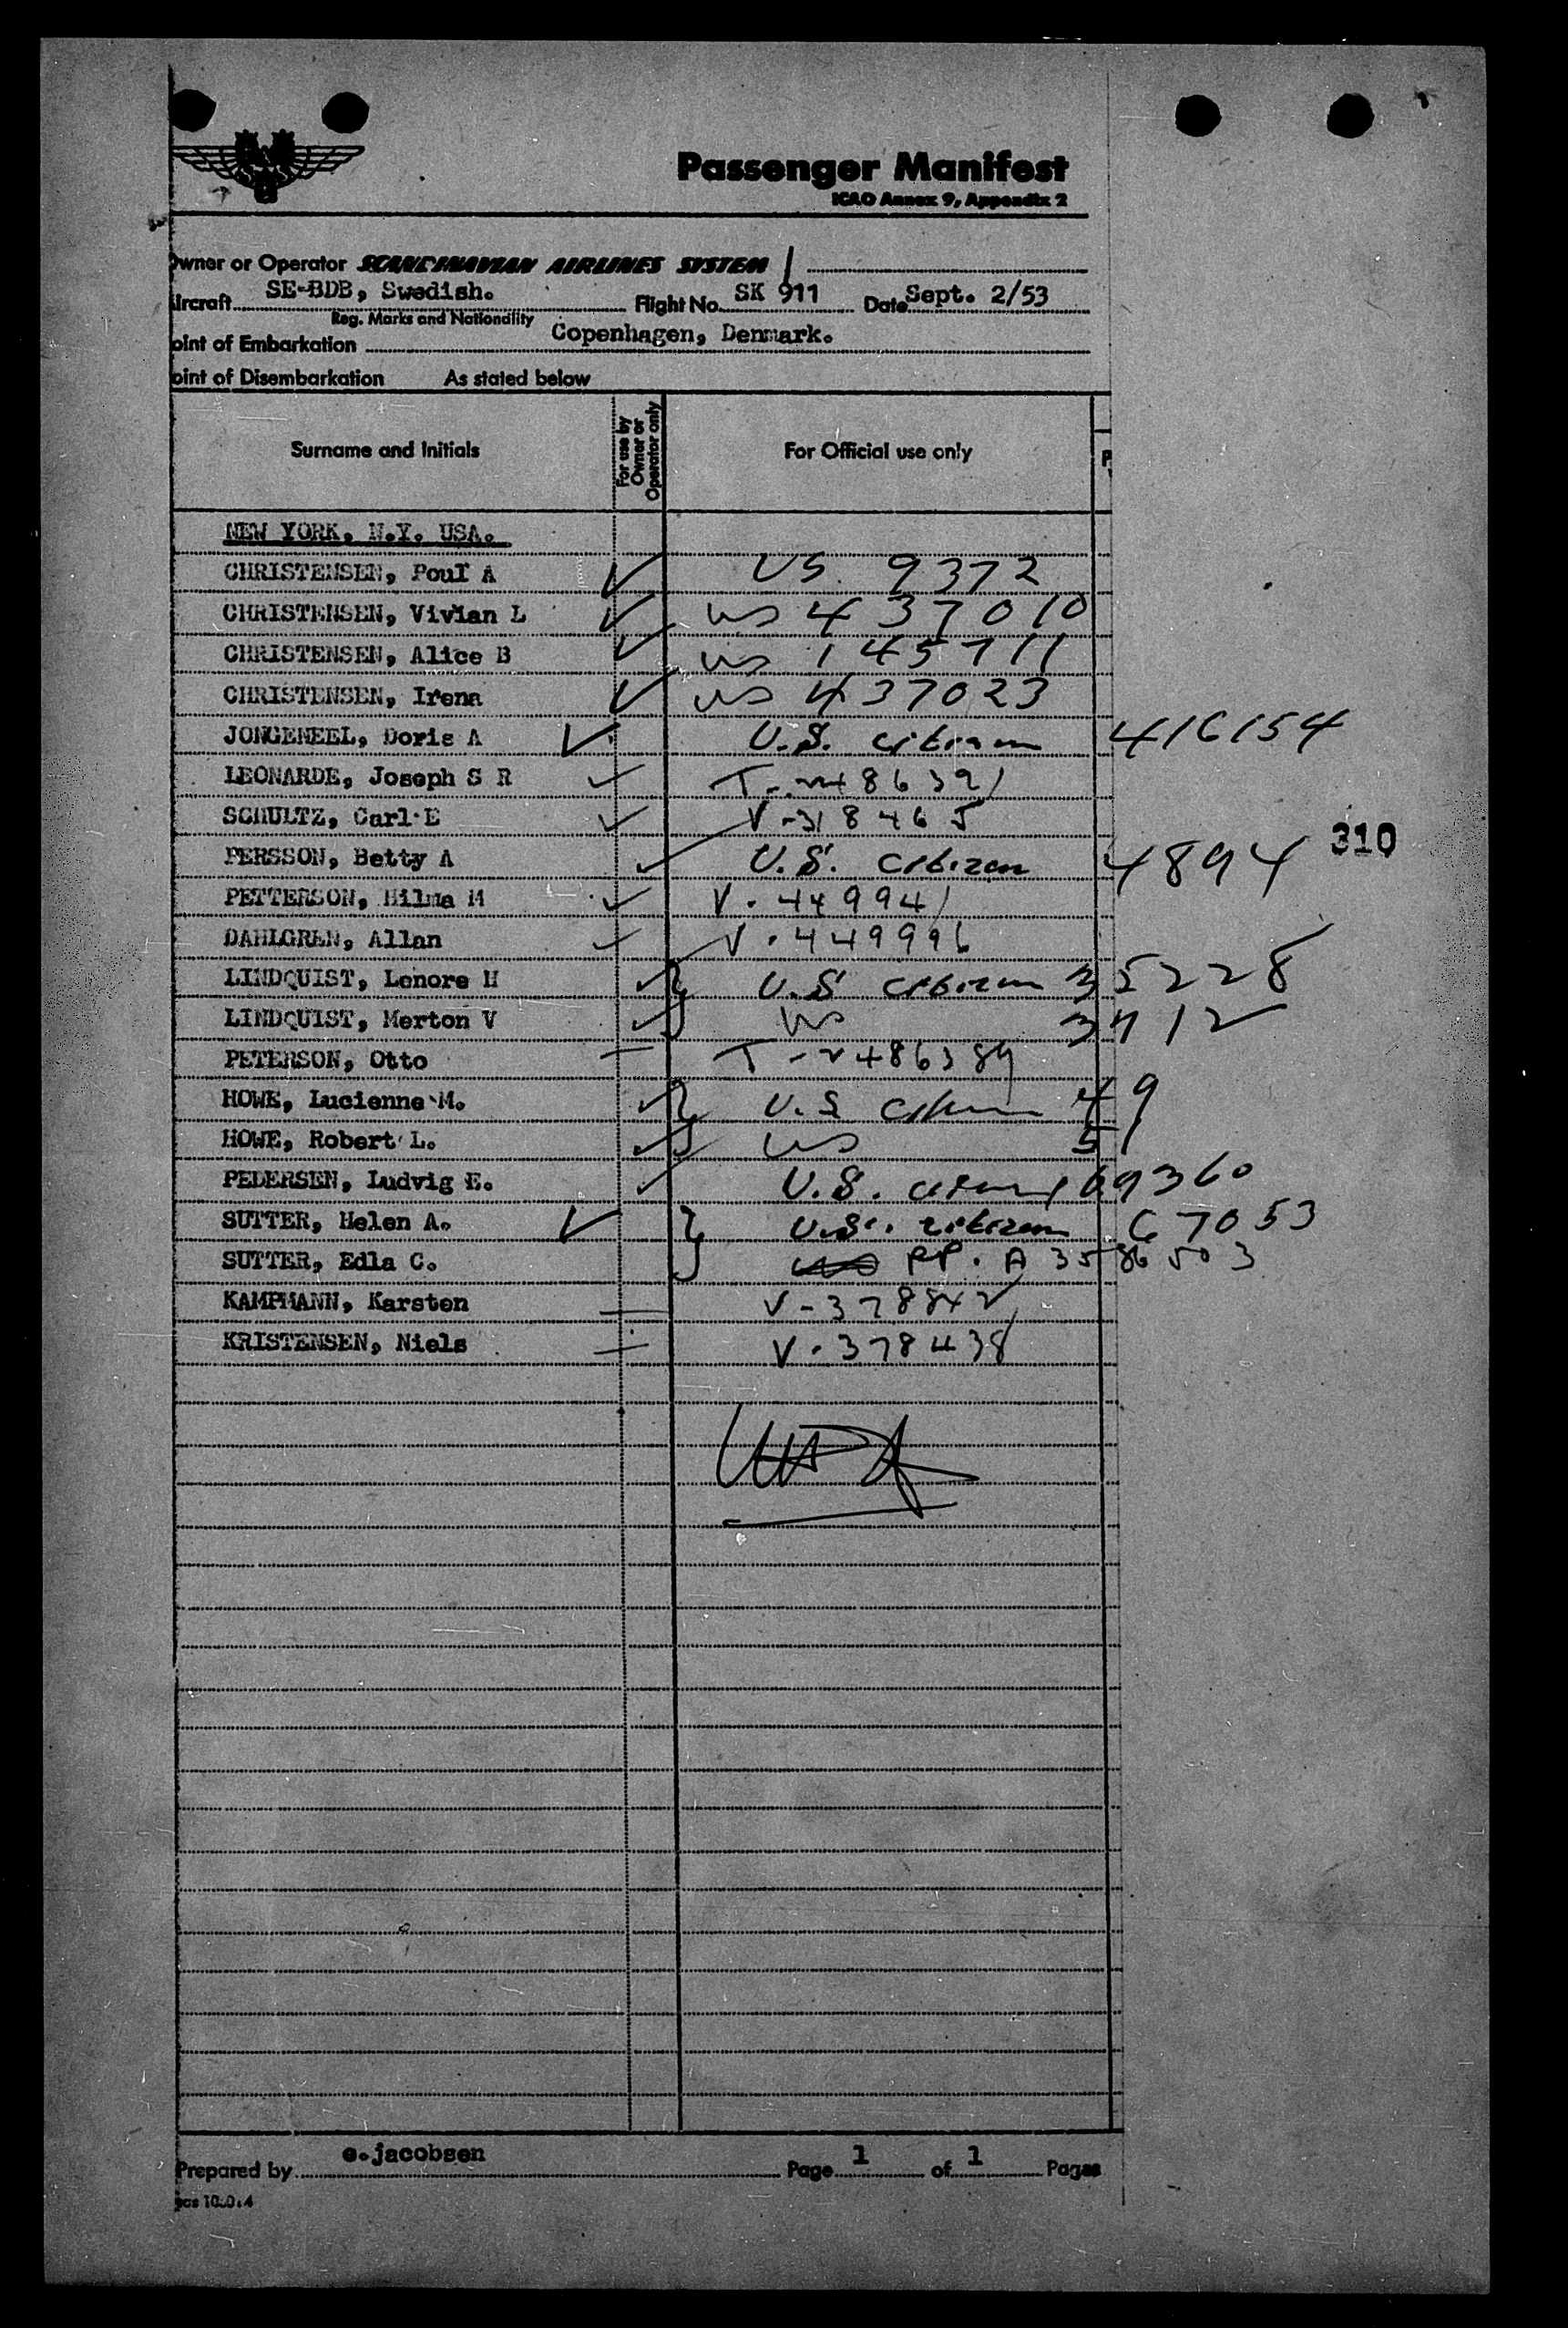 Passenger Manifest
ICAO Annex 9, Appendix 2
Owner or Operator SCANDINAVIAN AIRLINES SYSTEM
Aircraft SE-BDB, Swedish. Flight No. SK 911 Date Sept. 2/53
Reg. Marks and Nationality
Point of Embarkation Copenhagen, Denmark.
Point of Disembarkation As stated below
Surname and Initials For use by Owner or Operator only For Official use only P
NEW YORK, N.Y. USA.
CHRISTENSEN, Poul A US 9372
CHRISTENSEN, Vivian L us 437010
CHRISTENSEN, Alice B us 145711
CHRISTENSEN, Irena us 437023
JONGENEEL, Doris A U.S. citizen 416154
LEONARDE, Joseph S R T-2486391
SCHULTZ, Carl E V-318465
310
PERSSON, Betty A U.S. citizen 4894
PETTERSON, Hilma M V.449941
DAHLGREN, Allan V.449996
LINDQUIST, Lenore H U.S citizen 35228
LINDQUIST, Merton V us 3712
PETERSON, Otto T-2486389
HOWE, Lucienne M. U.S citizen 49
HOWE, Robert L. us 51
PEDERSEN, Ludvig E. U.S. citizen 69360
SUTTER, Helen A. U.S. citizen 67053
SUTTER, Edla C. PP. A 3586503
KAMPMANN, Karsten V-378842
KRISTENSEN, Niels V.378438
Prepared by e.jacobsen Page 1 of 1 Pages